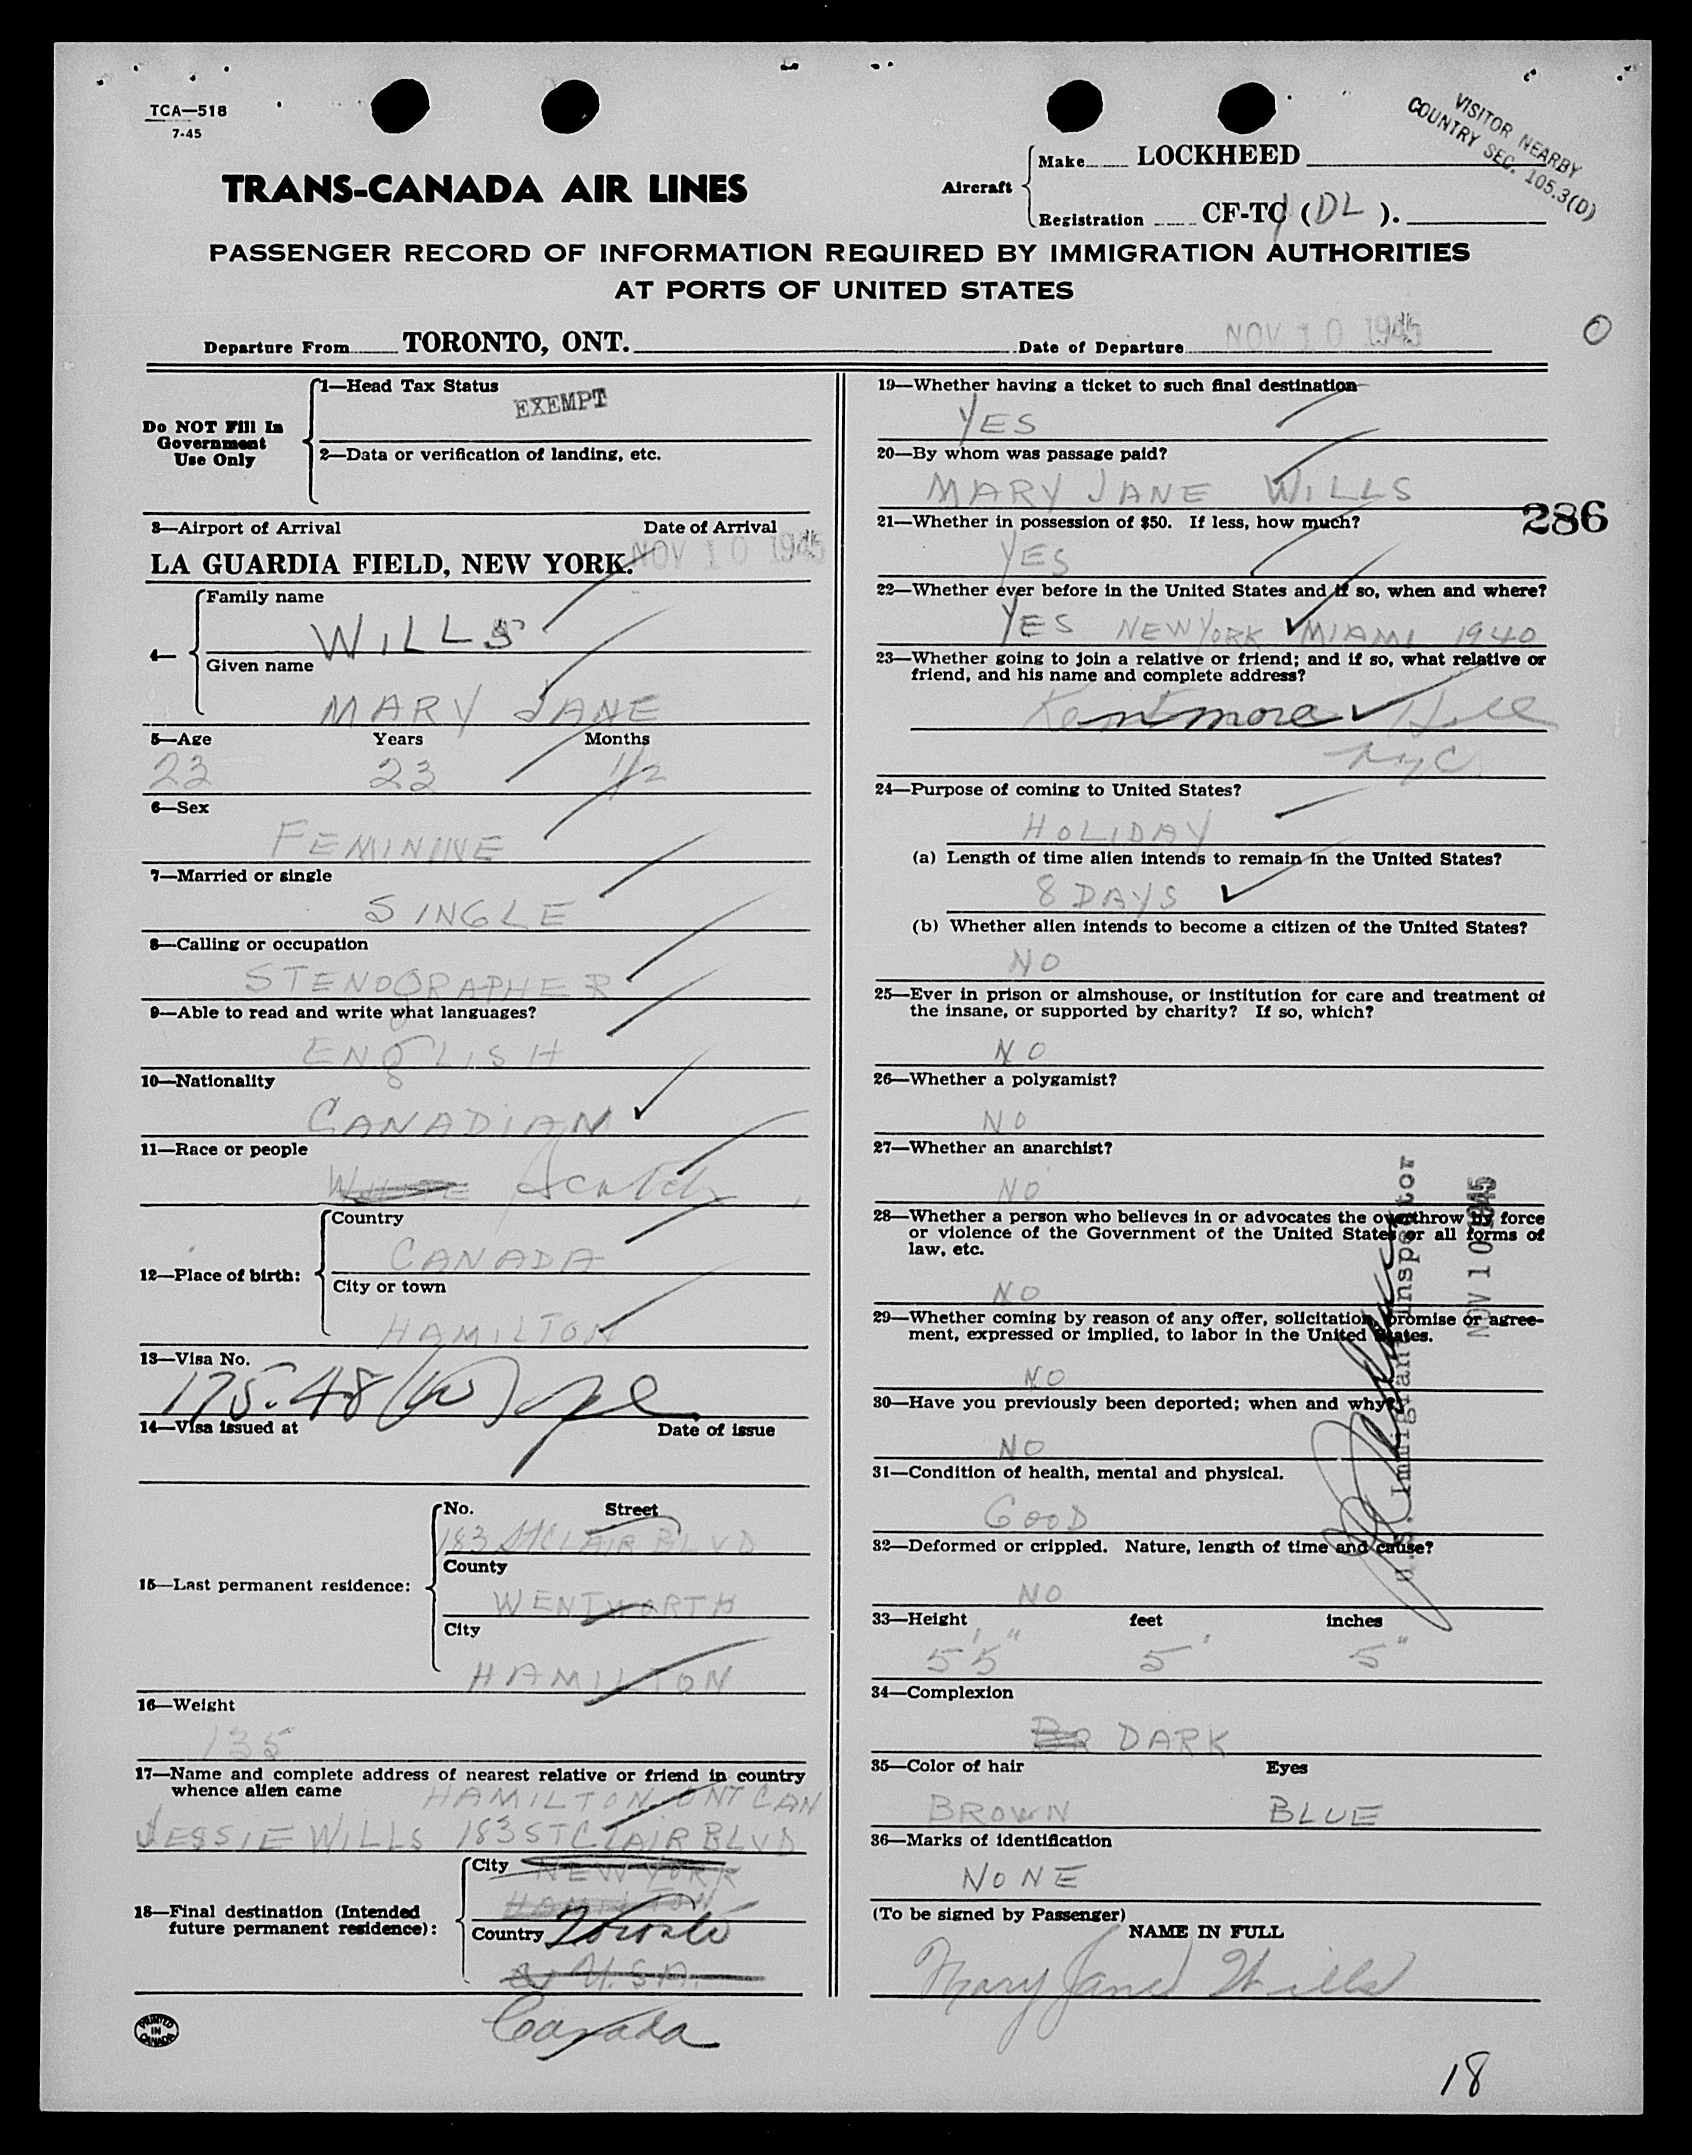 TCA—518
7-45
VISITOR NEARBY
COUNTRY SEC. 105.3(D)
TRANS-CANADA AIR LINES
Aircraft
Make LOCKHEED
Registration CF-TC (DL).
PASSENGER RECORD OF INFORMATION REQUIRED BY IMMIGRATION AUTHORITIES
AT PORTS OF UNITED STATES
Departure From TORONTO, ONT. Date of Departure NOV 10 1945
Do NOT Fill In
Government
Use Only
1—Head Tax Status
EXEMPT
2—Data or verification of landing, etc.
3—Airport of Arrival Date of Arrival
LA GUARDIA FIELD, NEW YORK. NOV 10 1945
4—
Family name
WILLS
Given name
MARY JANE
5—Age Years Months
23 23 1/2
6—Sex
FEMININE
7—Married or single
SINGLE
8—Calling or occupation
STENOGRAPHER
9—Able to read and write what languages?
ENGLISH
10—Nationality
CANADIAN
11—Race or people
WHITE Scotch
12—Place of birth:
Country
CANADA
City or town
HAMILTON
13—Visa No.
175.48 (W)
14—Visa issued at Date of issue
15—Last permanent residence:
No. Street
183 ST CLAIR BLVD
County
WENTWORTH
City
HAMILTON
16—Weight
135
17—Name and complete address of nearest relative or friend in country
whence alien came HAMILTON ONT CAN
JESSIE WILLS 183 ST CLAIR BLVD
18—Final destination (Intended
future permanent residence):
City NEW YORK
HAMILTON
Country Toronto
U.S.A.
Canada
PRINTED
IN
CANADA
19—Whether having a ticket to such final destination
YES
20—By whom was passage paid?
MARY JANE WILLS
21—Whether in possession of $50. If less, how much?
286
YES
22—Whether ever before in the United States and if so, when and where?
YES NEW YORK MIAMI 1940
23—Whether going to join a relative or friend; and if so, what relative or
friend, and his name and complete address?
NYC
24—Purpose of coming to United States?
HOLIDAY
(a) Length of time alien intends to remain in the United States?
8 DAYS
(b) Whether alien intends to become a citizen of the United States?
NO
25—Ever in prison or almshouse, or institution for care and treatment of
the insane, or supported by charity? If so, which?
NO
26—Whether a polygamist?
NO
27—Whether an anarchist?
NO
28—Whether a person who believes in or advocates the overthrow by force
or violence of the Government of the United States or all forms of
law, etc.
NO
29—Whether coming by reason of any offer, solicitation, promise or agree-
ment, expressed or implied, to labor in the United States.
NO
30—Have you previously been deported; when and why?
NO
31—Condition of health, mental and physical.
GOOD
32—Deformed or crippled. Nature, length of time and cause?
NO
U.S. Immigrant Inspector
NOV 10 1945
33—Height feet inches
5'5" 5' 5"
34—Complexion
BR DARK
35—Color of hair Eyes
BROWN BLUE
36—Marks of identification
NONE
(To be signed by Passenger)
NAME IN FULL
Mary Jane Wills
18